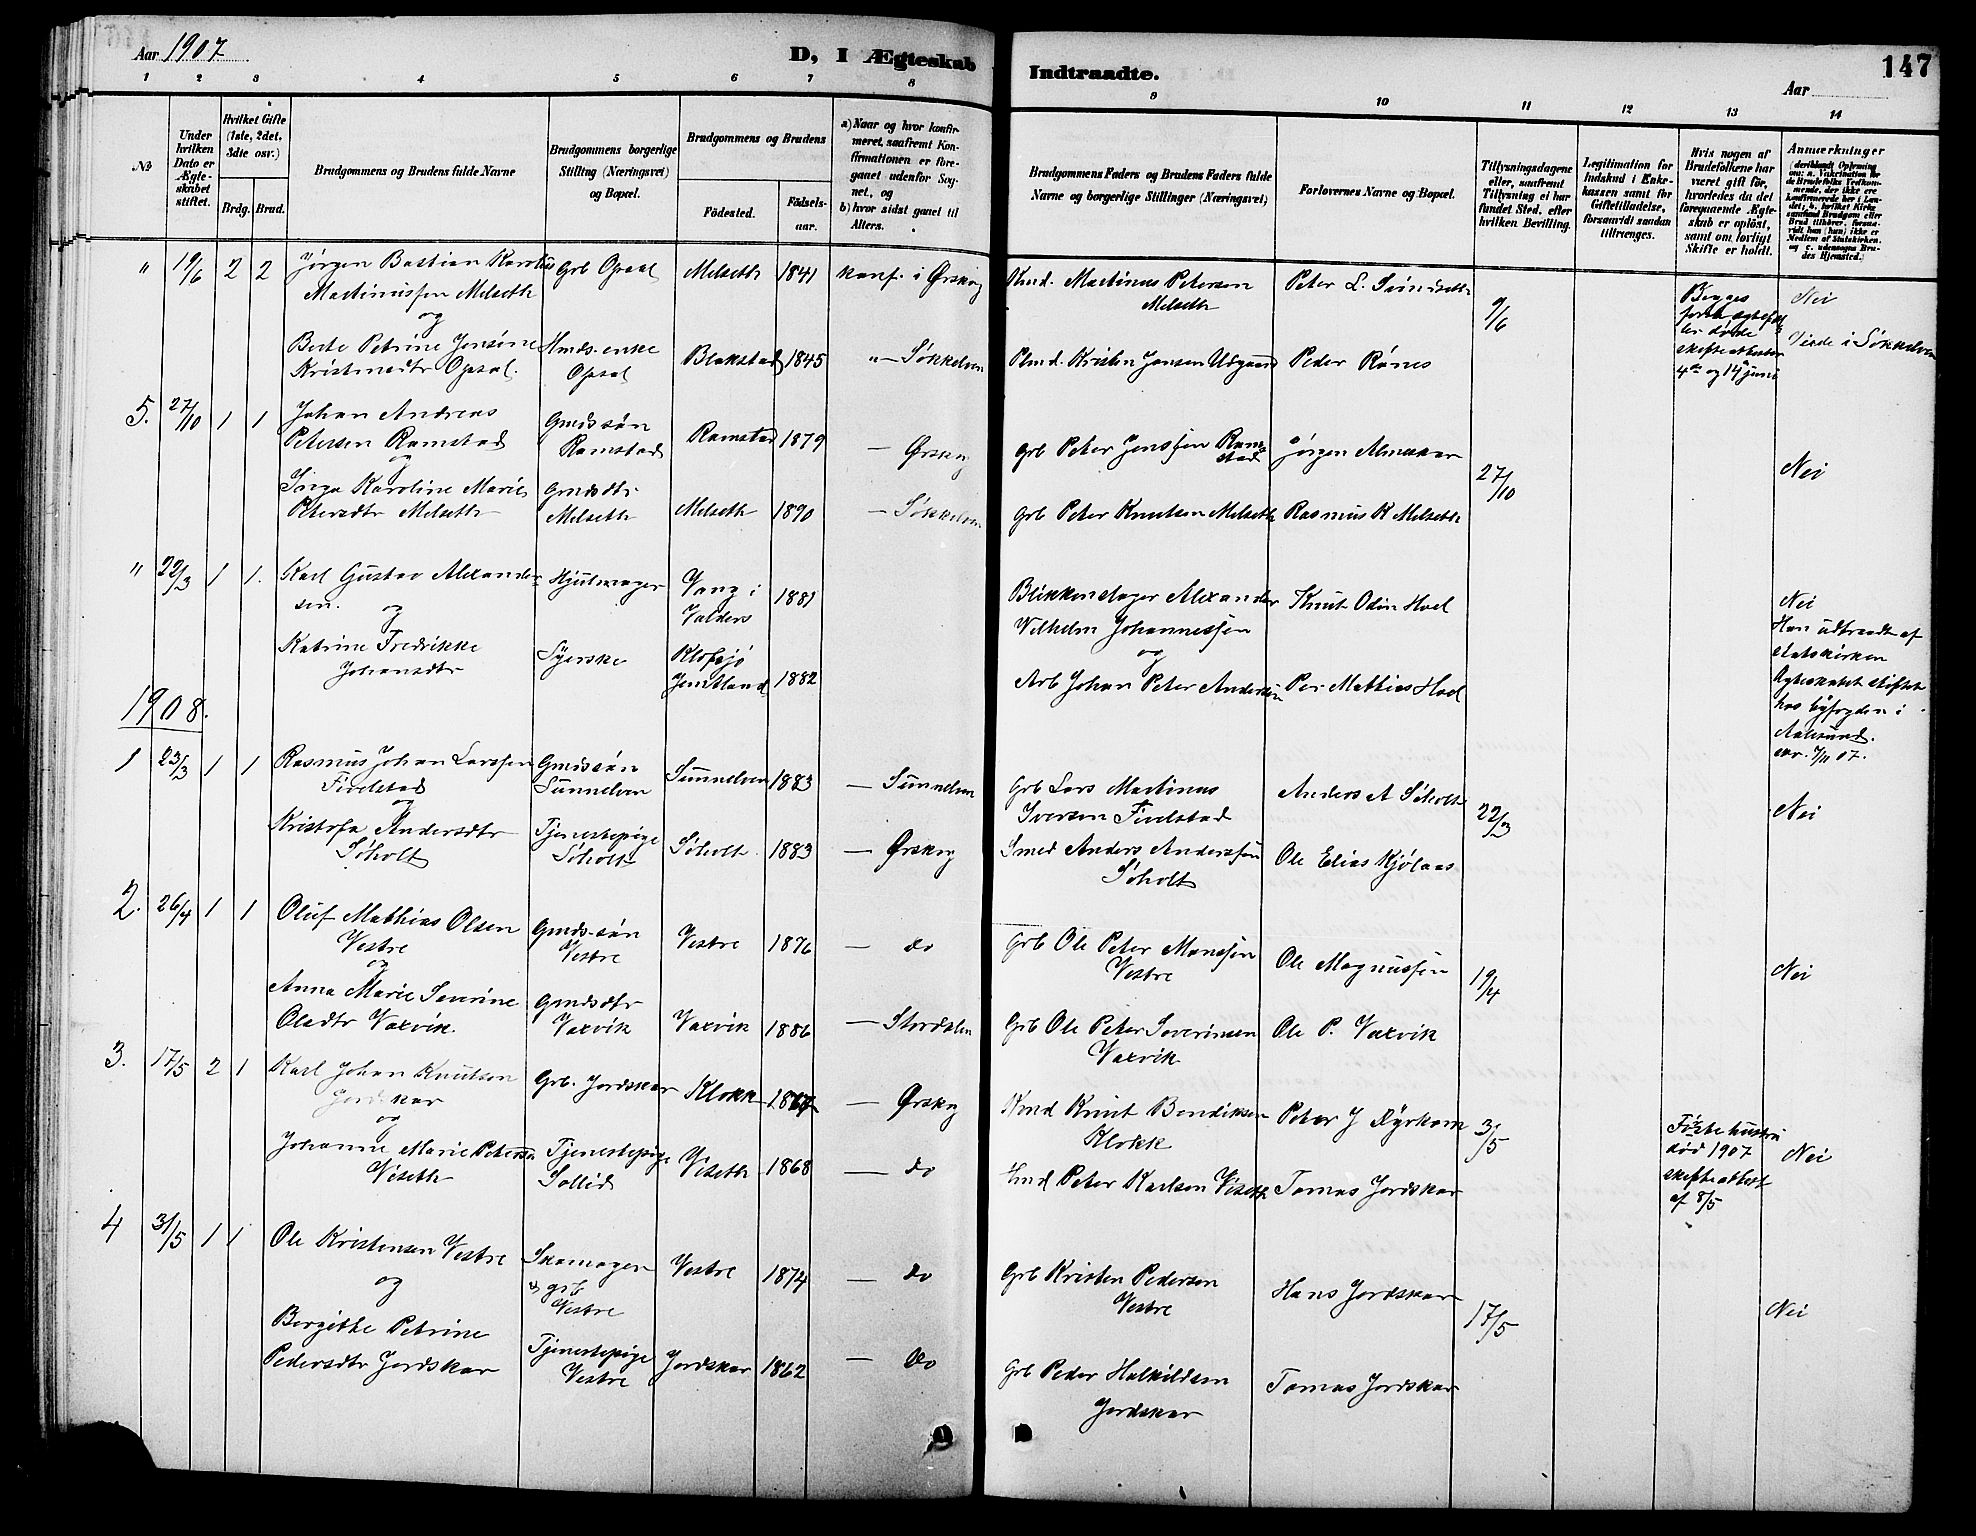 Aar 1907
D, I Ægteskab
Indtraadte.
147
Aar
1 2 3 4 5 6 7 8 9 10 11 12 13 14
№
Under hvilken Dato er Ægteskabet stiftet.
Hvilket Gifte (1ste, 2det, 3die osv.)
Brdg. Brud.
Brudgommens og Brudens fulde Navne
Brudgommens borgerlige Stilling (Næringsvei) og Bopæl.
Brudgommens og Brudens
Fødested.
Fødselsaar.
a) Naar og hvor konfirmeret, saafremt Konfirmationen er foreganet udenfor Sognet, og
b) hvor sidst ganet til Alters.
Brudgommens Faders og Brudens Faders fulde Navne og borgerlige Stillinger (Næringsvei)
Forlovernes Navne og Bopæl.
Tillysningsdagene eller, saafremt Tillysning ei har fundet Sted, efter hvilken Bevilling.
Legitimation for Indskud i Enkekassen samt for Giftetilladelse, forsaavidt saadan tiltrænges.
Hvis nogen af Brudefolkene har været gift før, hvorledes da det foregaaende Ægteskab er opløst, samt om lovligt Skifte er holdt.
Anmærkninger
" 19/6 2 2
Jørgen Bastian Karolus
Martinussen Melseth
og
Grb Opsal
Melseth 1841
konf. i Ørskog
Hmd. Martinus Petersen
Melseth
Peter L.
9/6
Begges
Nei
Berte Petrine Jensine
Kristensdtr Opsal.
Hmds. enke
Opsal
Blakstad 1845
" — Søkkelven
Kristen Jensen
Peder Rønes
Viede i Søkkelven
4de og 14 juni
5. 27/10 1 1
Johan Andreas
Petersen Ramstad
og
Gmdssøn
Ramstad
Ramstad 1879
— Ørskog
Grb Peter Jenssen Ramstad
Jørgen Almeskar
27/10
Nei
Inga Karoline Marie
Petersdtr Melseth
Gmdsdtr
Melseth
Melseth 1890
— Søkkelven
Grb Peter Knutsen Melseth
Rasmus K Melseth
" 22/3 1 1.
Karl Gustav Alexandersen.
og
Hjulmager
Vang i
Valders
1881
Blikkenslager Alexander
Wilhelm Johannessen
og
Knut Odin Hoel
Nei
Han udtraadt af
statskirken
Ægteskabet stiftet
hos byfogden i
Aalesund.
Katrine Fredrikke
Johansdtr
Syerske
Klofsjø
Jemtland 1882
Arb Johan Peter Andersen
Per Mathias Hoel
1908.
1 23/3 1 1
Rasmus Johan Larssen
Fivelstad
og
Gmdssøn
Sunnelven
Sunnelven 1883
— Sunnelven
Grb Lars Martinus
Iversen Fivelstad
Anders A Søholt
22/3
Nei
Kristofa Andersdtr
Søholt
Tjenestepige
Søholt
Søholt 1883
— Ørskog
Smed Anders Anderssen
Søholt
Ole Elias Kjølaas
2. 26/4 1 1
Oluf Mathias Olsen
Vestre
og
Gmds.søn
Vestre
Vestre 1876
— do
Grb Ole Peter Monssen
Vestre
Ole Magnussen
19/4
Nei
Anna Marie Severine
Olsdtr Vaxvik.
Gmdsdtr
Vaxvik
Vaxvik 1886
— Stordalen
Grb Ole Peter Severinsen
Vaxvik
Ole P. Vaxvik
3. 17/5 2 1
Karl Johan Knutsen
Jordskar
og
Grb. Jordskar
Klokk 1867
— Ørskog
Hmd Knut Bendiksen
Klokk
Peter J Dyrkorn
3/5
Første hustru
død 1907
skifteattest
af 8/5
Nei
Johanne Marie Petersdtr
Viseth
Tjenestepige
Sollid
Viseth 1868
— do
Hmd Peter Karlsen Viseth
Tomas Jordskar
4 31/5 1 1
Ole Kristensen Vestre
og
Skomager
& grb
Vestre
Vestre 1874
— do
Grb Kristen Pedersen
Vestre
Hans Jordskar
17/5
Nei
Bergithe Petrine
Pedersdtr Jordskar
Tjenestepige
Vestre
Jordskar 1862
— do
Grb Peder Halkildsen
Jordskar
Tomas Jordskar